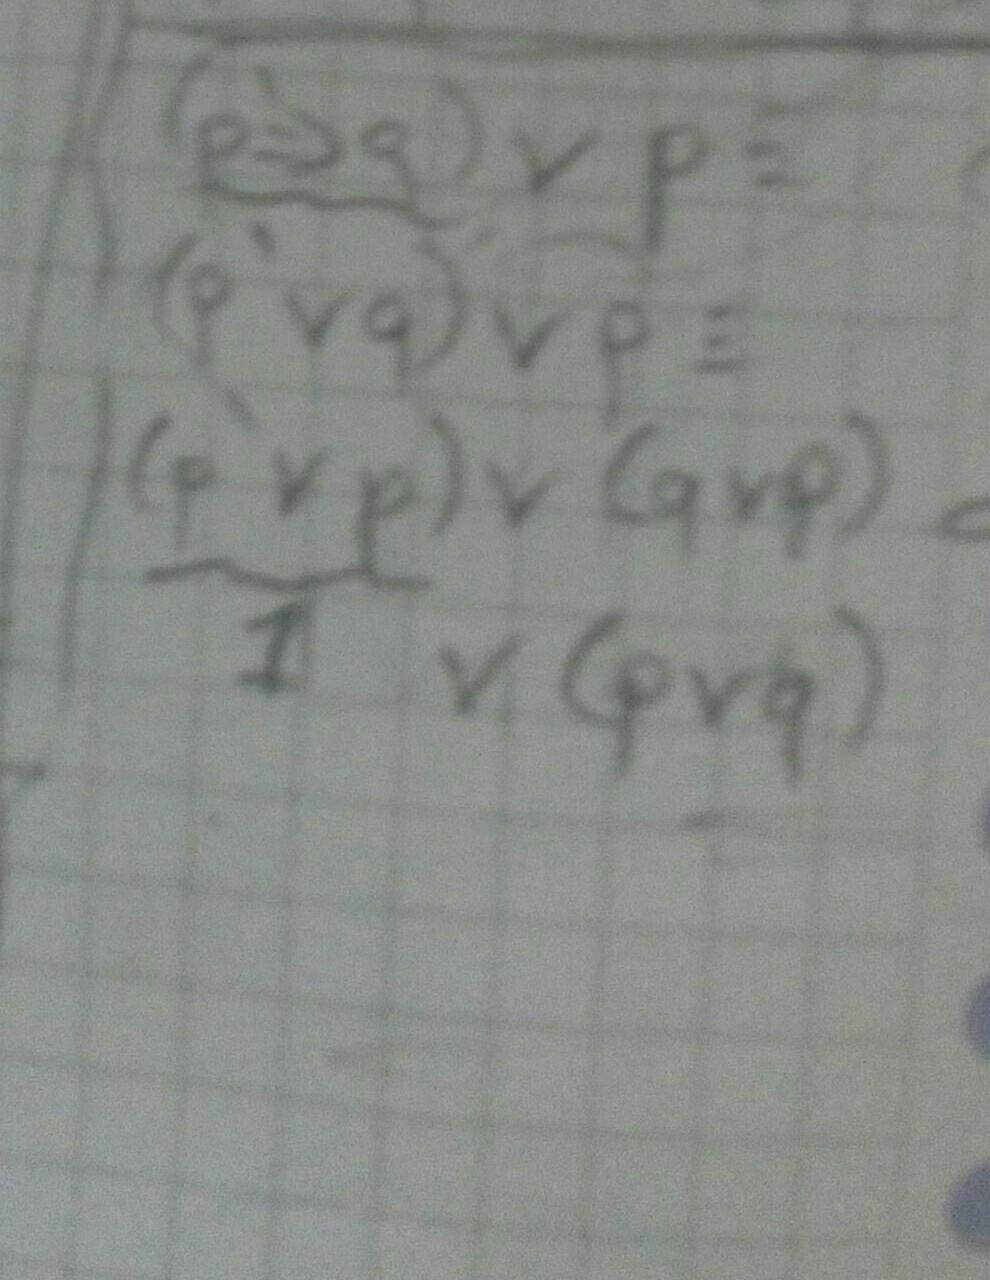 (p⇒q) ∨ p ≡
(p' ∨ q) ∨ p ≡
(p' ∨ p) ∨ (q ∨ p)
1 ∨ (p ∨ q)